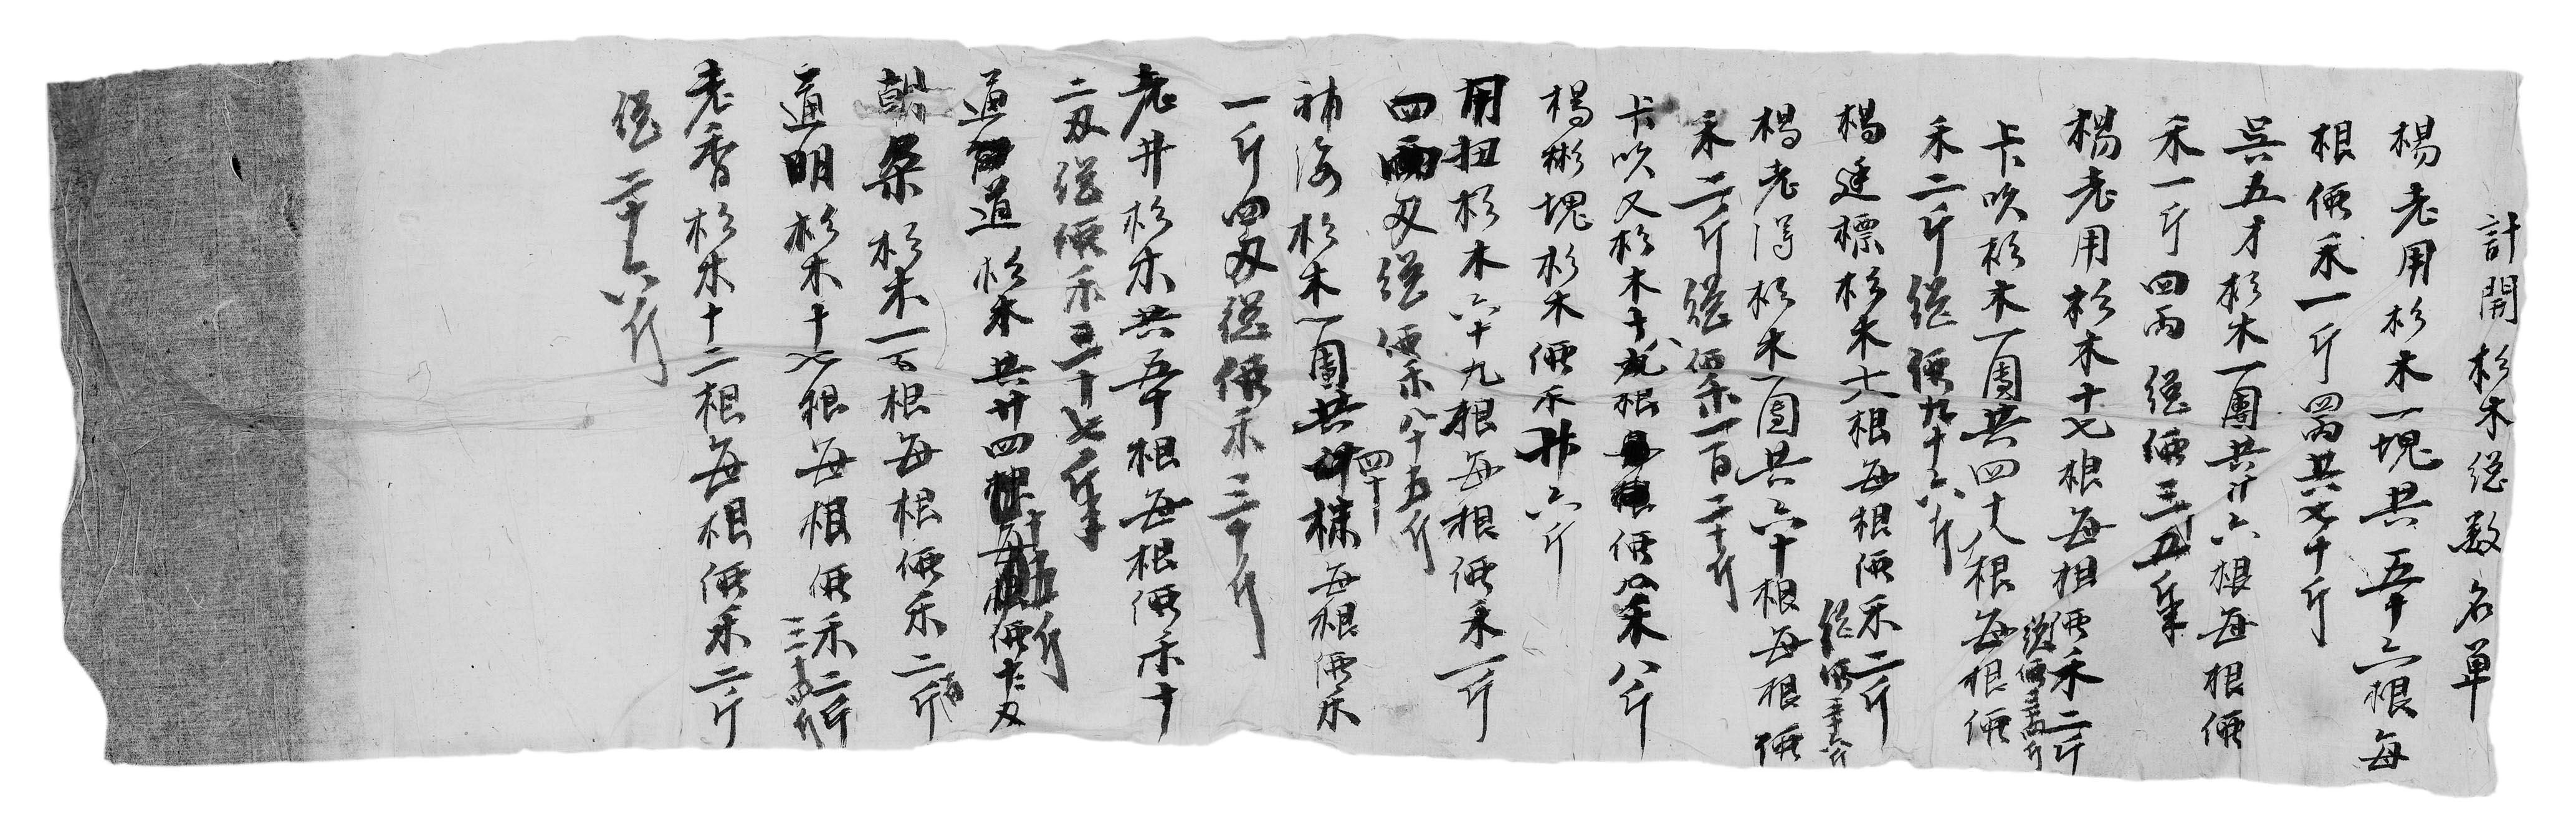 計開杉木總数名單
楊老用杉木一塊共五十六根每
根価禾一斤四两共七十斤
吳五才杉木一團共廿六根每根価
禾一斤四两總価三五斤半
楊老用杉木十七根每根価禾二斤
總価三十四斤
卡吹杉木一團共四十八根每根価
禾二斤總価九十六斤
楊廷標杉木十八根每根価禾二斤
總価三十六斤
楊老得杉木一團共六十根每根価
禾二斤總価禾一百二十斤
卡吹又杉木十九根価禾八斤
楊彬塊杉木価禾卅六斤
用扭杉木六十九根每根価禾一斤
四刄總価禾八十五斤
補海杉木一團共卌株每根価禾
四十
一斤四刄總価禾三十斤
老井杉木共五十根每根価禾十
二刄總価禾三十七斤半
通道杉木共廿四根每根価十二刄
斤
朝榮杉木一百根每根価禾二斤
二百
道明杉木十七根每根価禾二斤
三十四斤
老香杉木十二根每根価禾二斤
總二十六斤